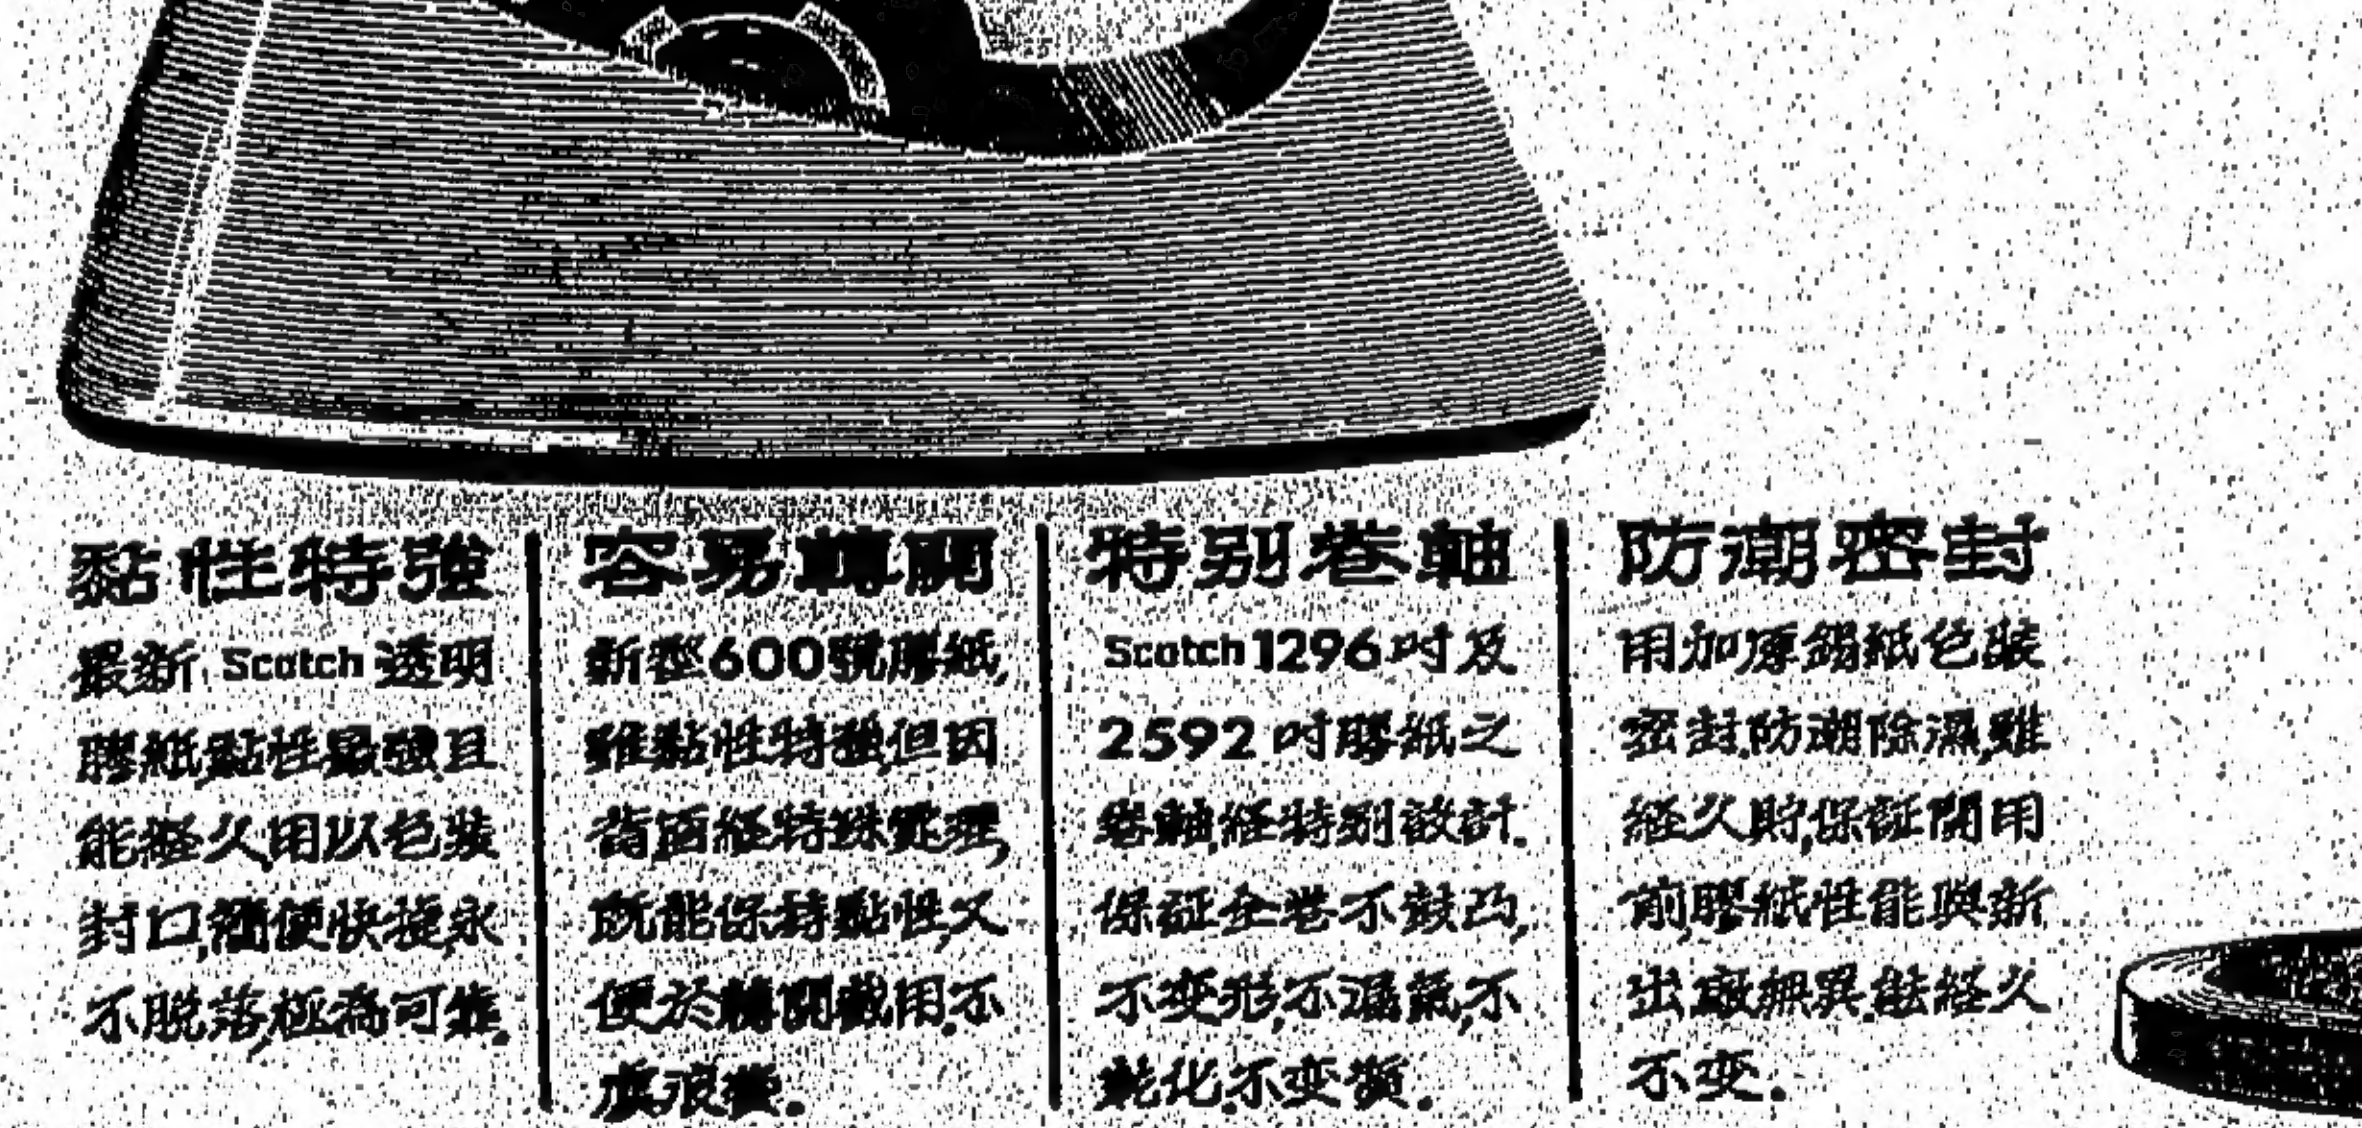 黏性特強
最新 Scotch 透明
膠紙,黏性最強且
能經久,用以包裝
封口,簡便快捷,永
不脫落,極為可靠.
容易轉開
新型600號膠紙,
雖黏性特強,但因
背面經特殊處理,
既能保持黏性,又
便於轉開截用,不
虞浪費.
特别卷軸
Scotch 1296吋及
2592吋膠紙之
卷軸,經特别設計.
保証全卷不鼓凸,
不变形,不漏氣,不
乾化.不变質.
防潮密封
用加厚錫紙包裝
密封,防潮除濕,雖
經久貯,保証開用
前,膠紙性能與新
出廠無異.能經久
不变.